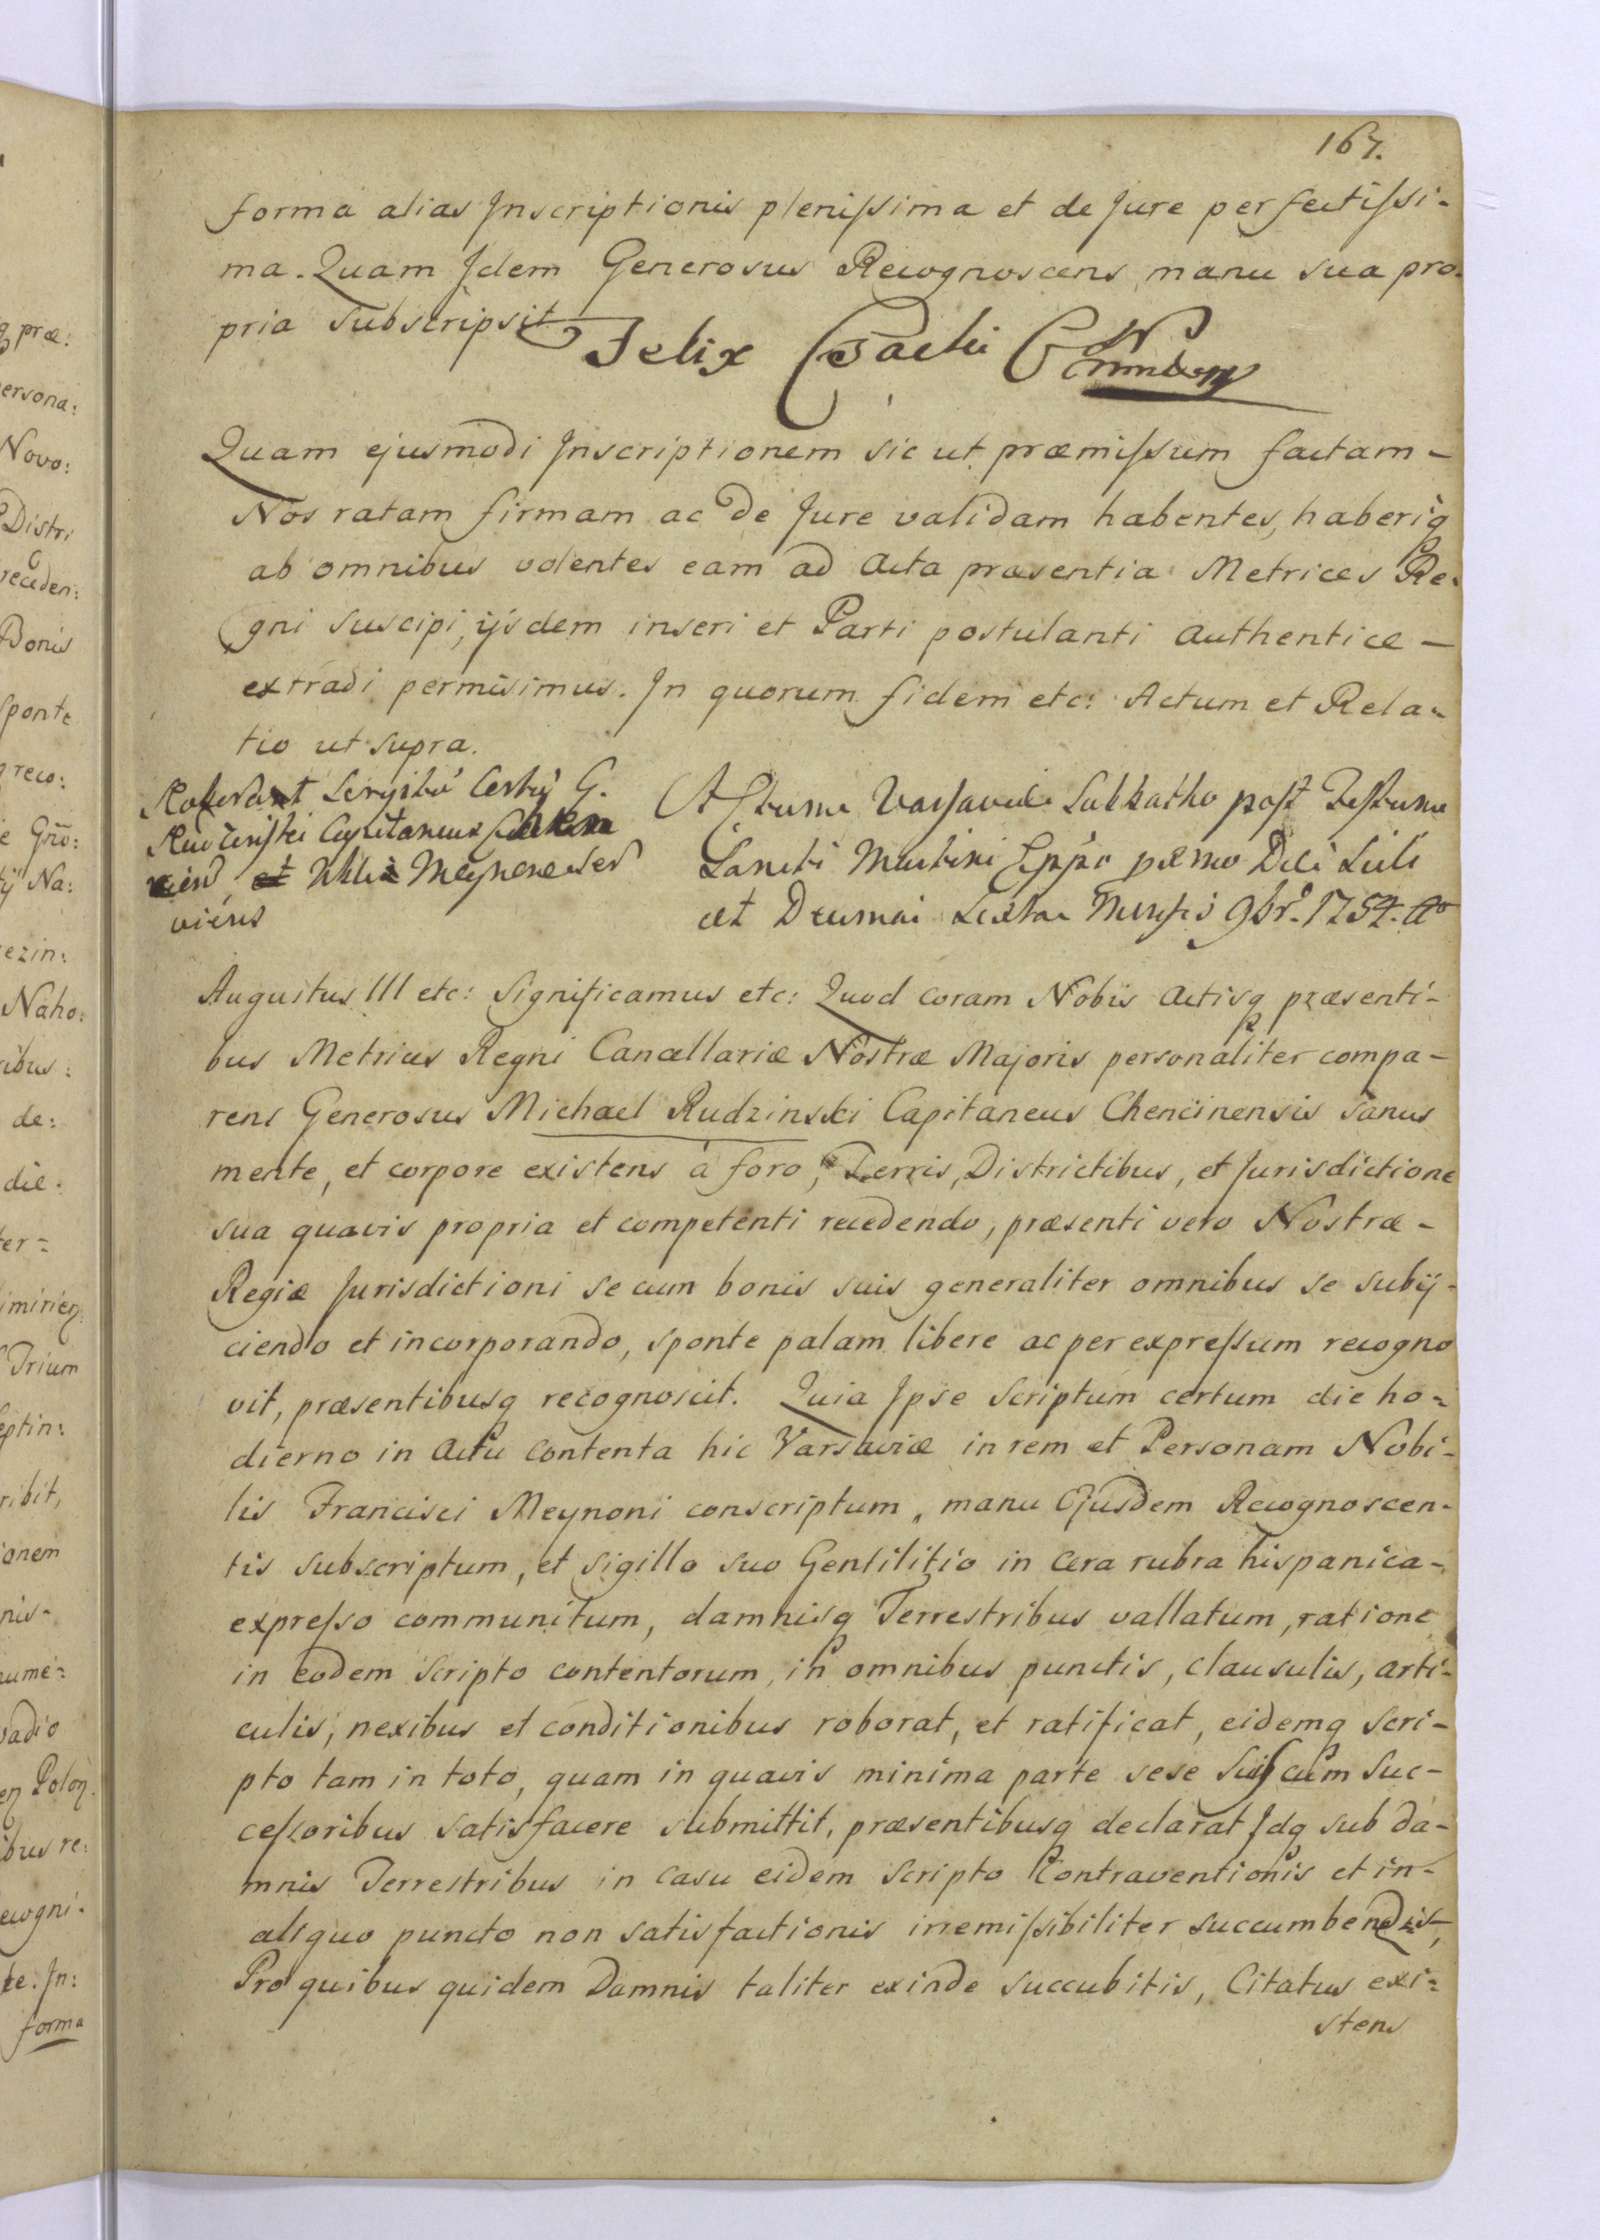 167.
forma alias Inscriptionis plenissima et de Jure perfectissi-
ma. Quam Idem Generosus Recognoscens manu sua pro-
pria subscripsit
Felix Czacki
Quam ejusmodi Inscriptionem sic ut præmissum factam -
Nos ratam firmam ac de Jure validam habentes, haberiq
ab omnibus volentes eam ad Acta præsentia Metrices Re-
gni suscipi, ijsdem inseri et Parti postulanti authentice -
extradi permisimus. In quorum fidem etc: Actum et Rela-
tio ut supra.
Roborat Scripti Certi G.
Rudzinski Capitaneus
Meynone
Actum Varsaviæ Sabbatho post Festum
Sancti Martini Eppi primo Die
et Decima Sexta Mensis 9br. 1754. Ao
Augustus III etc: Significamus etc: Quod coram Nobis Actisq præsenti-
bus Metrices Regni Cancellariæ Nostræ Majoris personaliter compa-
rens Generosus Michael Rudzinski Capitaneus Chencinensis sanus
mente, et corpore existens à foro, Terris, Districtibus, et Jurisdictione
sua quavis propria et competenti recedendo, præsenti vero Nostræ -
Regiæ Jurisdictioni se cum bonis suis generaliter omnibus se subij-
ciendo et incorporando, sponte palam libere ac per expressum recogno
vit, præsentibusq recognoscit. Quia Ipse Scriptum certum die ho-
dierno in Actu contenta hic Varsaviæ in rem et Personam Nobi-
lis Francisci Meynoni conscriptum, manu Ejusdem Recognoscen-
tis subscriptum, et sigillo suo Gentilitio in cera rubra hispanica-
expresso communitum, damnisq Terrestribus vallatum, ratione
in eodem scripto contentorum, in omnibus punctis, clausulis, arti-
culis, nexibus et conditionibus roborat, et ratificat, eidemq scri-
pto tam in toto, quam in quavis minima parte sese suisq cum suc-
cessoribus satisfacere submittit, præsentibusq declarat Idq sub da-
mnis Terrestribus in casu eidem scripto Contraventionis et in-
aliquo puncto non satisfactionis irremissibiliter succumbendis,
Pro quibus quidem Damnis taliter exinde succubitis, Citatus exi-
stens